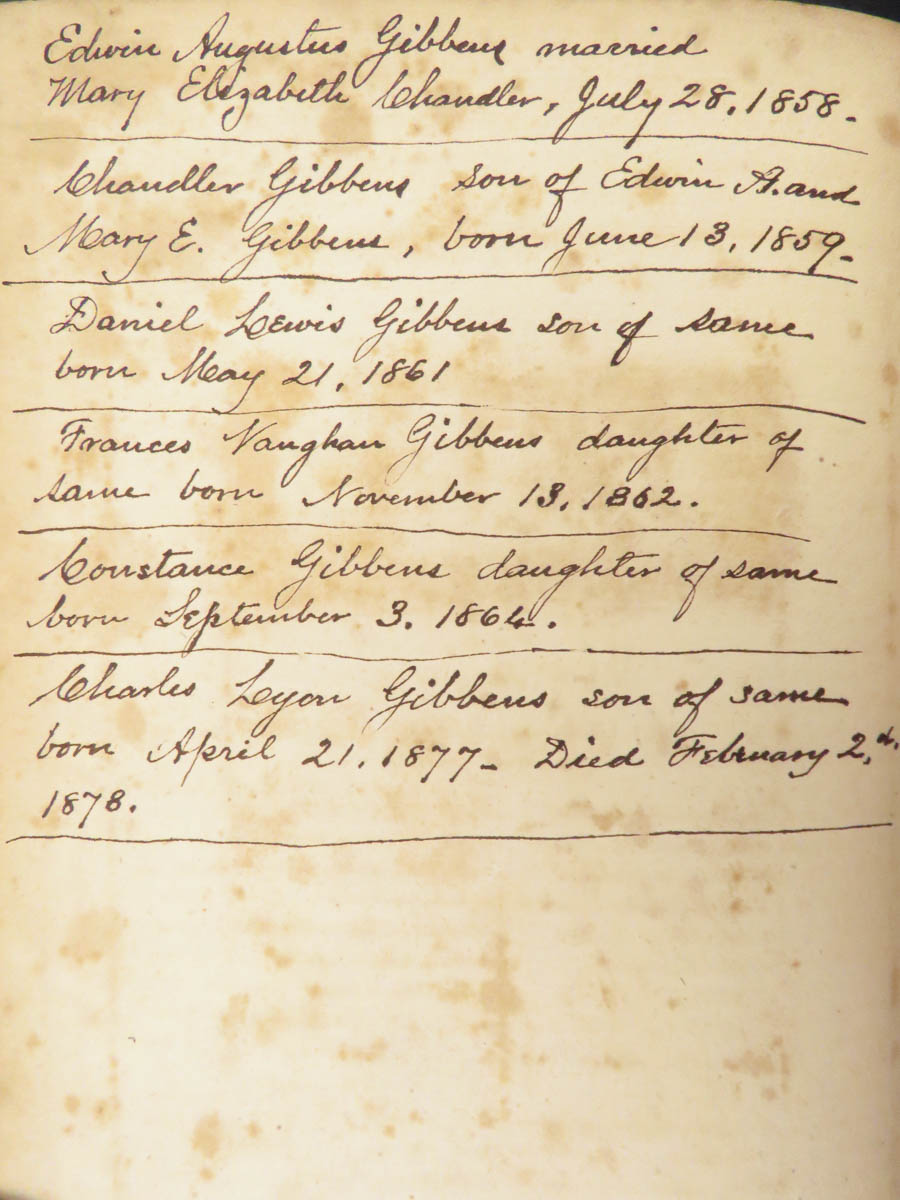 Edwin Augustus Gibbens married
Mary Elizabeth Chandler, July 28, 1858.
Chandler Gibbens son of Edwin A. and
Mary E. Gibbens, born June 13, 1859.
Daniel Lewis Gibbens son of same
born May 21, 1861
Frances Vaughan Gibbens daughter of
same born November 13, 1862.
Constance Gibbens daughter of same
born September 3. 1864.
Charles Lyon Gibbens son of same
born April 21, 1877. Died February 2,d.
1878.